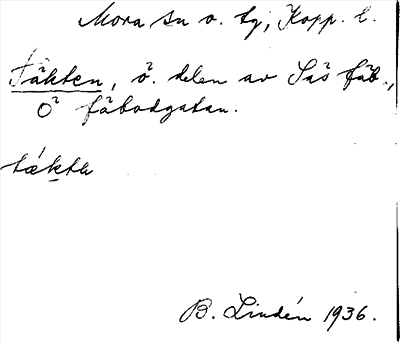 Mora sn o. tg, Kopp. l.
Täkten, ö. delen av Säs fäb.,
Ö fäbodgatan.
tä́ktn
B. Lindén 1936.